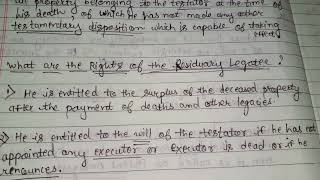 all property belonging to the testator at the time of
his death of which He has not made any other
testamentary disposition which is capable of taking
effect.
what are the Rights of the Residuary Legatee?
1) He is entitled to the surplus of the deceased property
after the payment of deaths and other legacies.
2) He is entitled to the will of the testator if he has not
appointed any executor or executor is dead or if he
renounces.